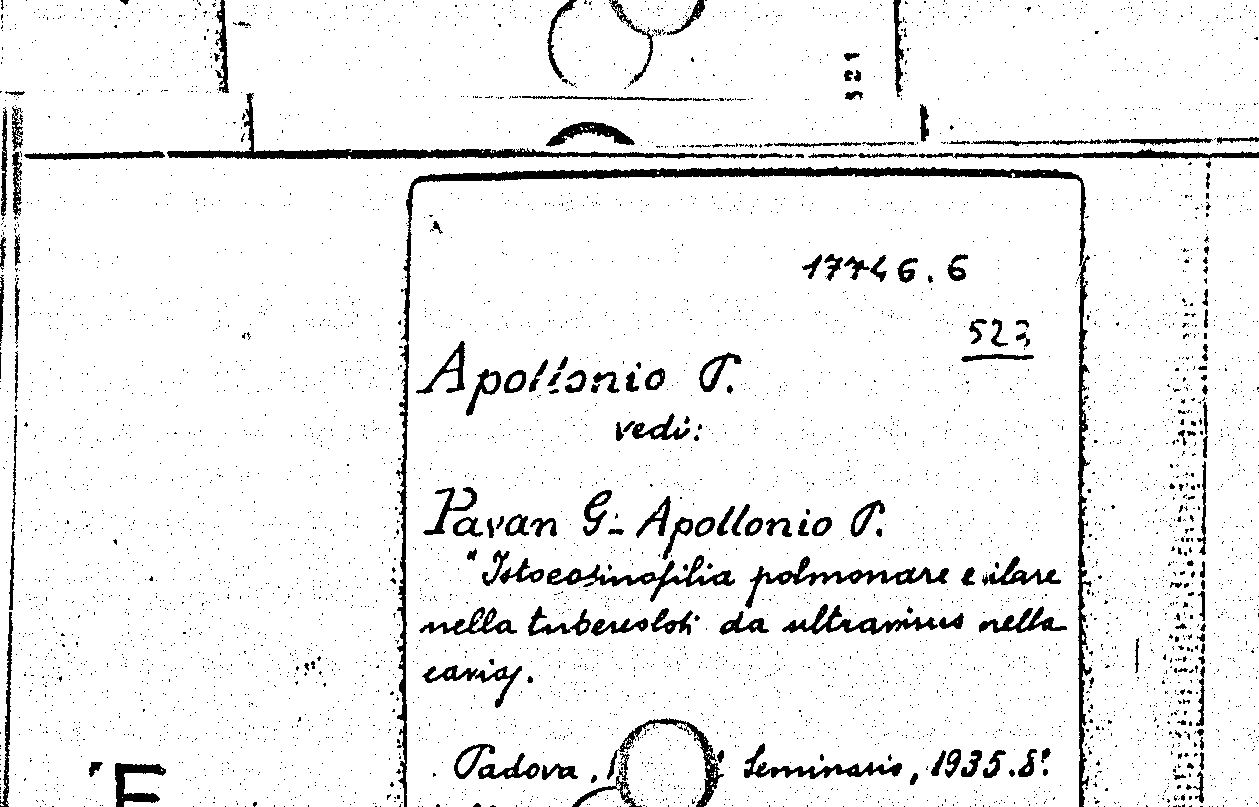 521
17746.6
523
Apollonio P.
vedi:
Pavan G. - Apollonio P.
"Istoeosinofilia polmonare e ilare
nella tubercolosi da ultravirus nella
cavia".
Padova, Seminario, 1935. 8º.
E